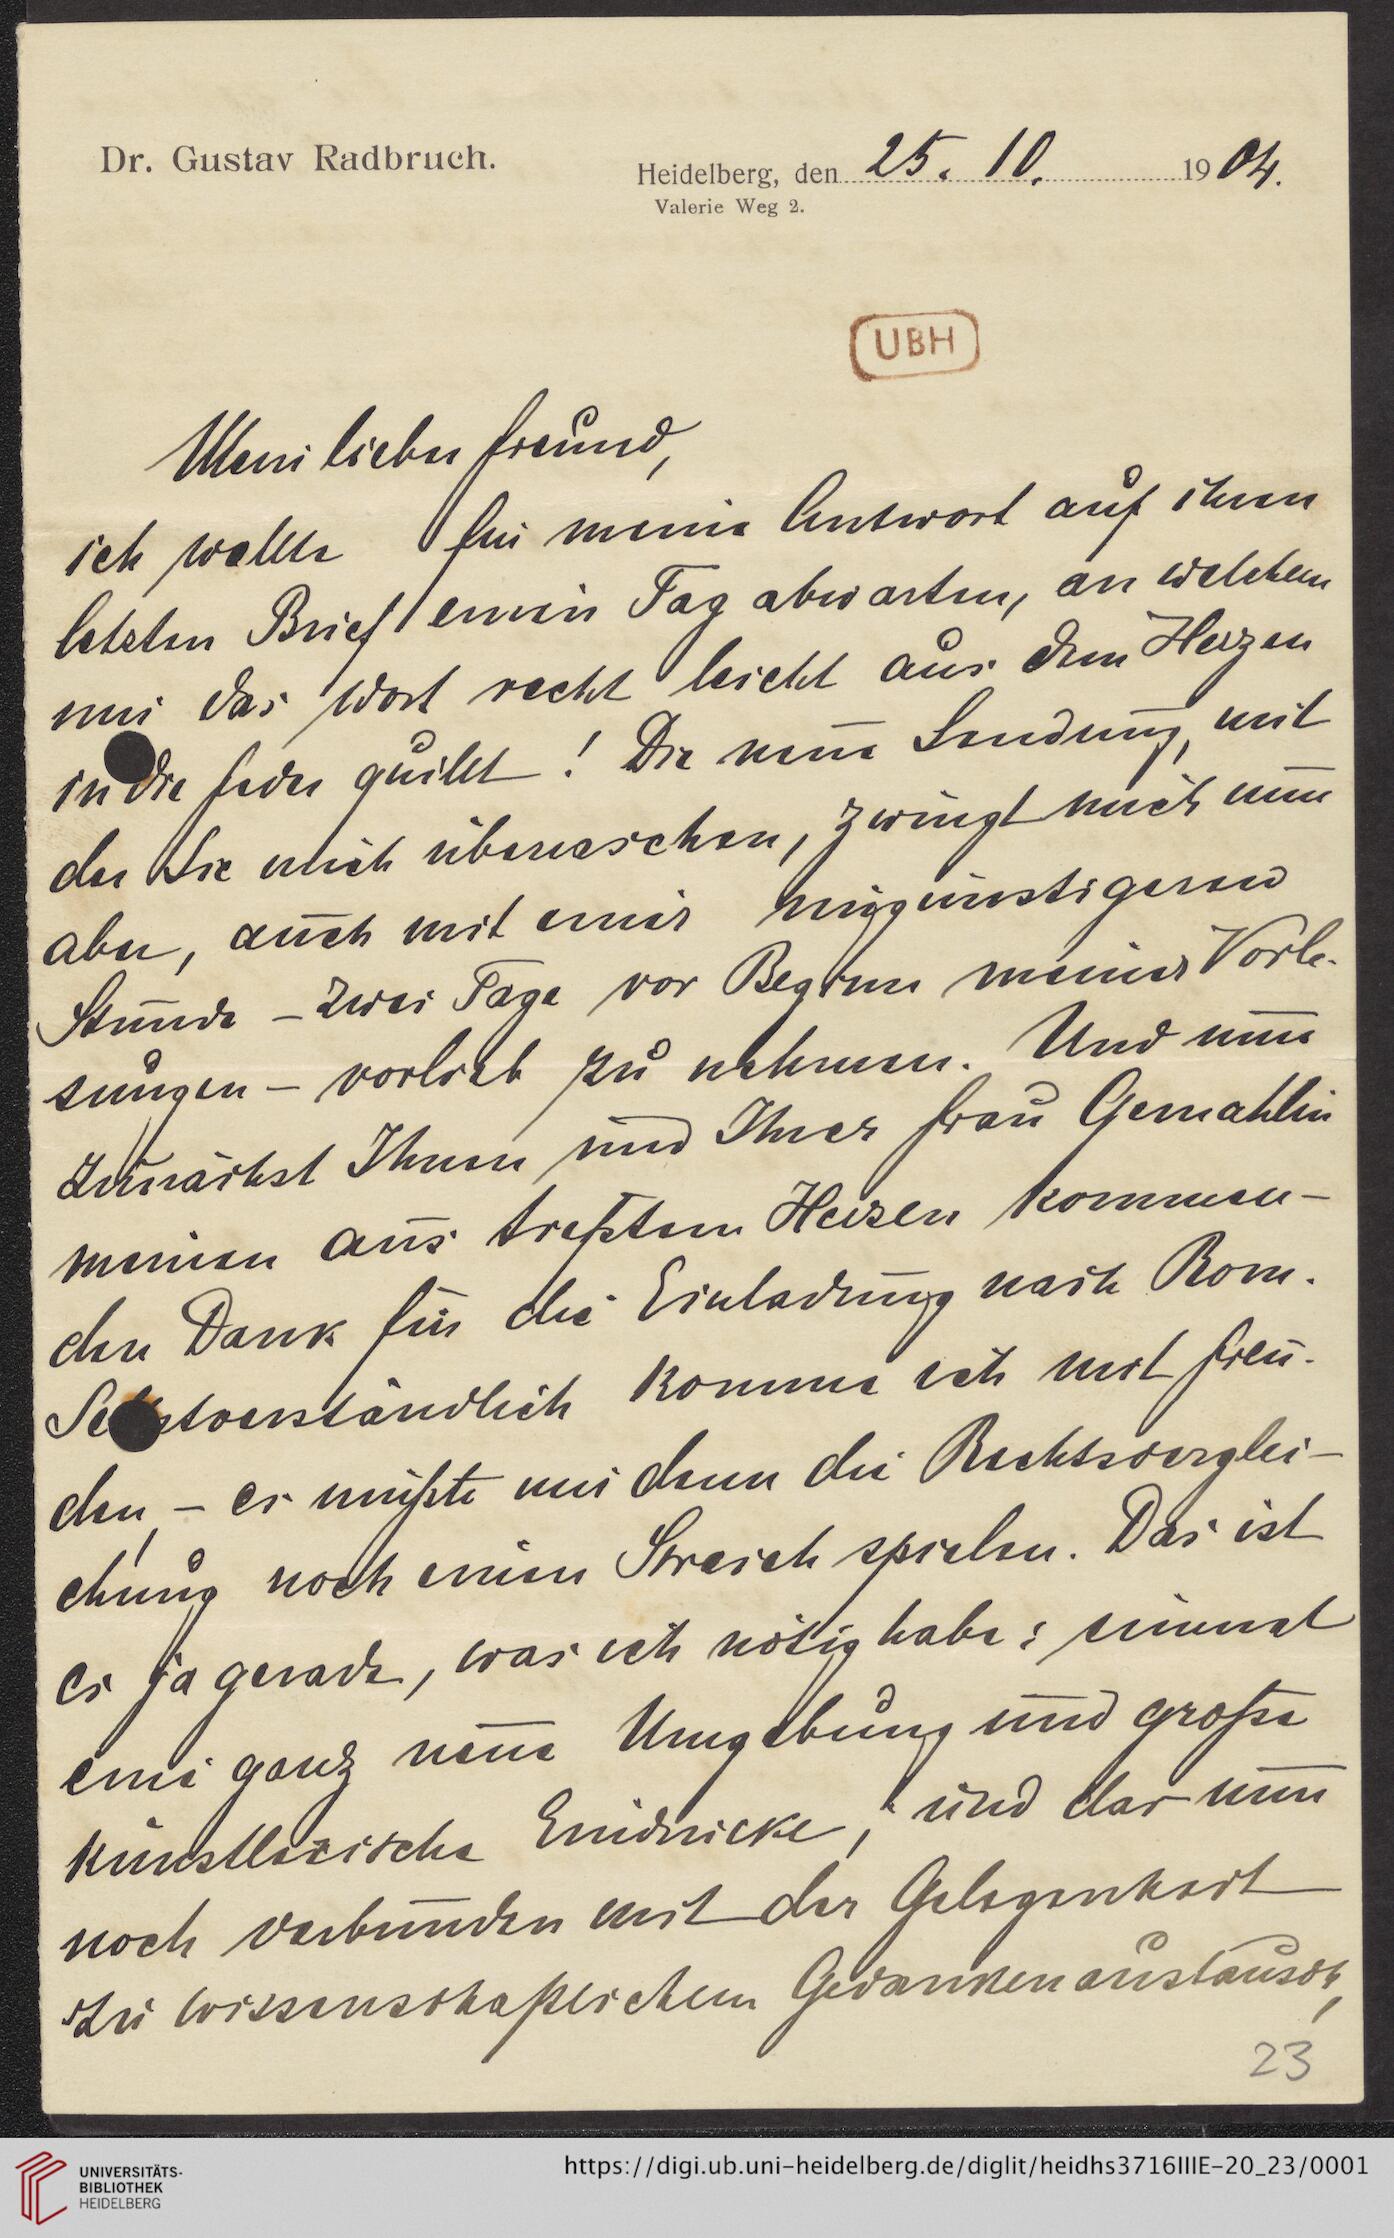 Dr. Gustav Radbruch.
Heidelberg, den 25. 10. 1904.
Valerie Weg 2.
UBH
Mein lieber Freund,
ich wollte für meine Antwort auf ihren
letzten Brief einen Tag abwarten, an welchem
mir das Wort recht leicht aus dem Herzen
in die Feder quillt! Die neue Sendung, mit
der Sie mich überraschen, zwingt mich nun
aber, auch mit einer ungünstigeren
Stunde – zwei Tage vor Beginn meiner Vorle-
sungen – vorlieb zu nehmen. Und nun
zunächst Ihnen und Ihrer Frau Gemahlin
meinen aus tiefstem Herzen kommen-
den Dank für die Einladung nach Rom.
Selbstverständlich komme ich mit Freu-
den, – es müßte mir denn die Rechtsverglei-
chung noch einen Streich spielen. Das ist
es ja gerade, was ich nötig habe: einmal
eine ganz neue Umgebung und große
künstlerische Eindrücke, und das nun
noch verbunden mit der Gelegenheit
zu wissenschaftlichem Gedankenaustausch,
23
UNIVERSITÄTS-
BIBLIOTHEK
HEIDELBERG
https://digi.ub.uni-heidelberg.de/diglit/heidhs3716IIIE-20_23/0001